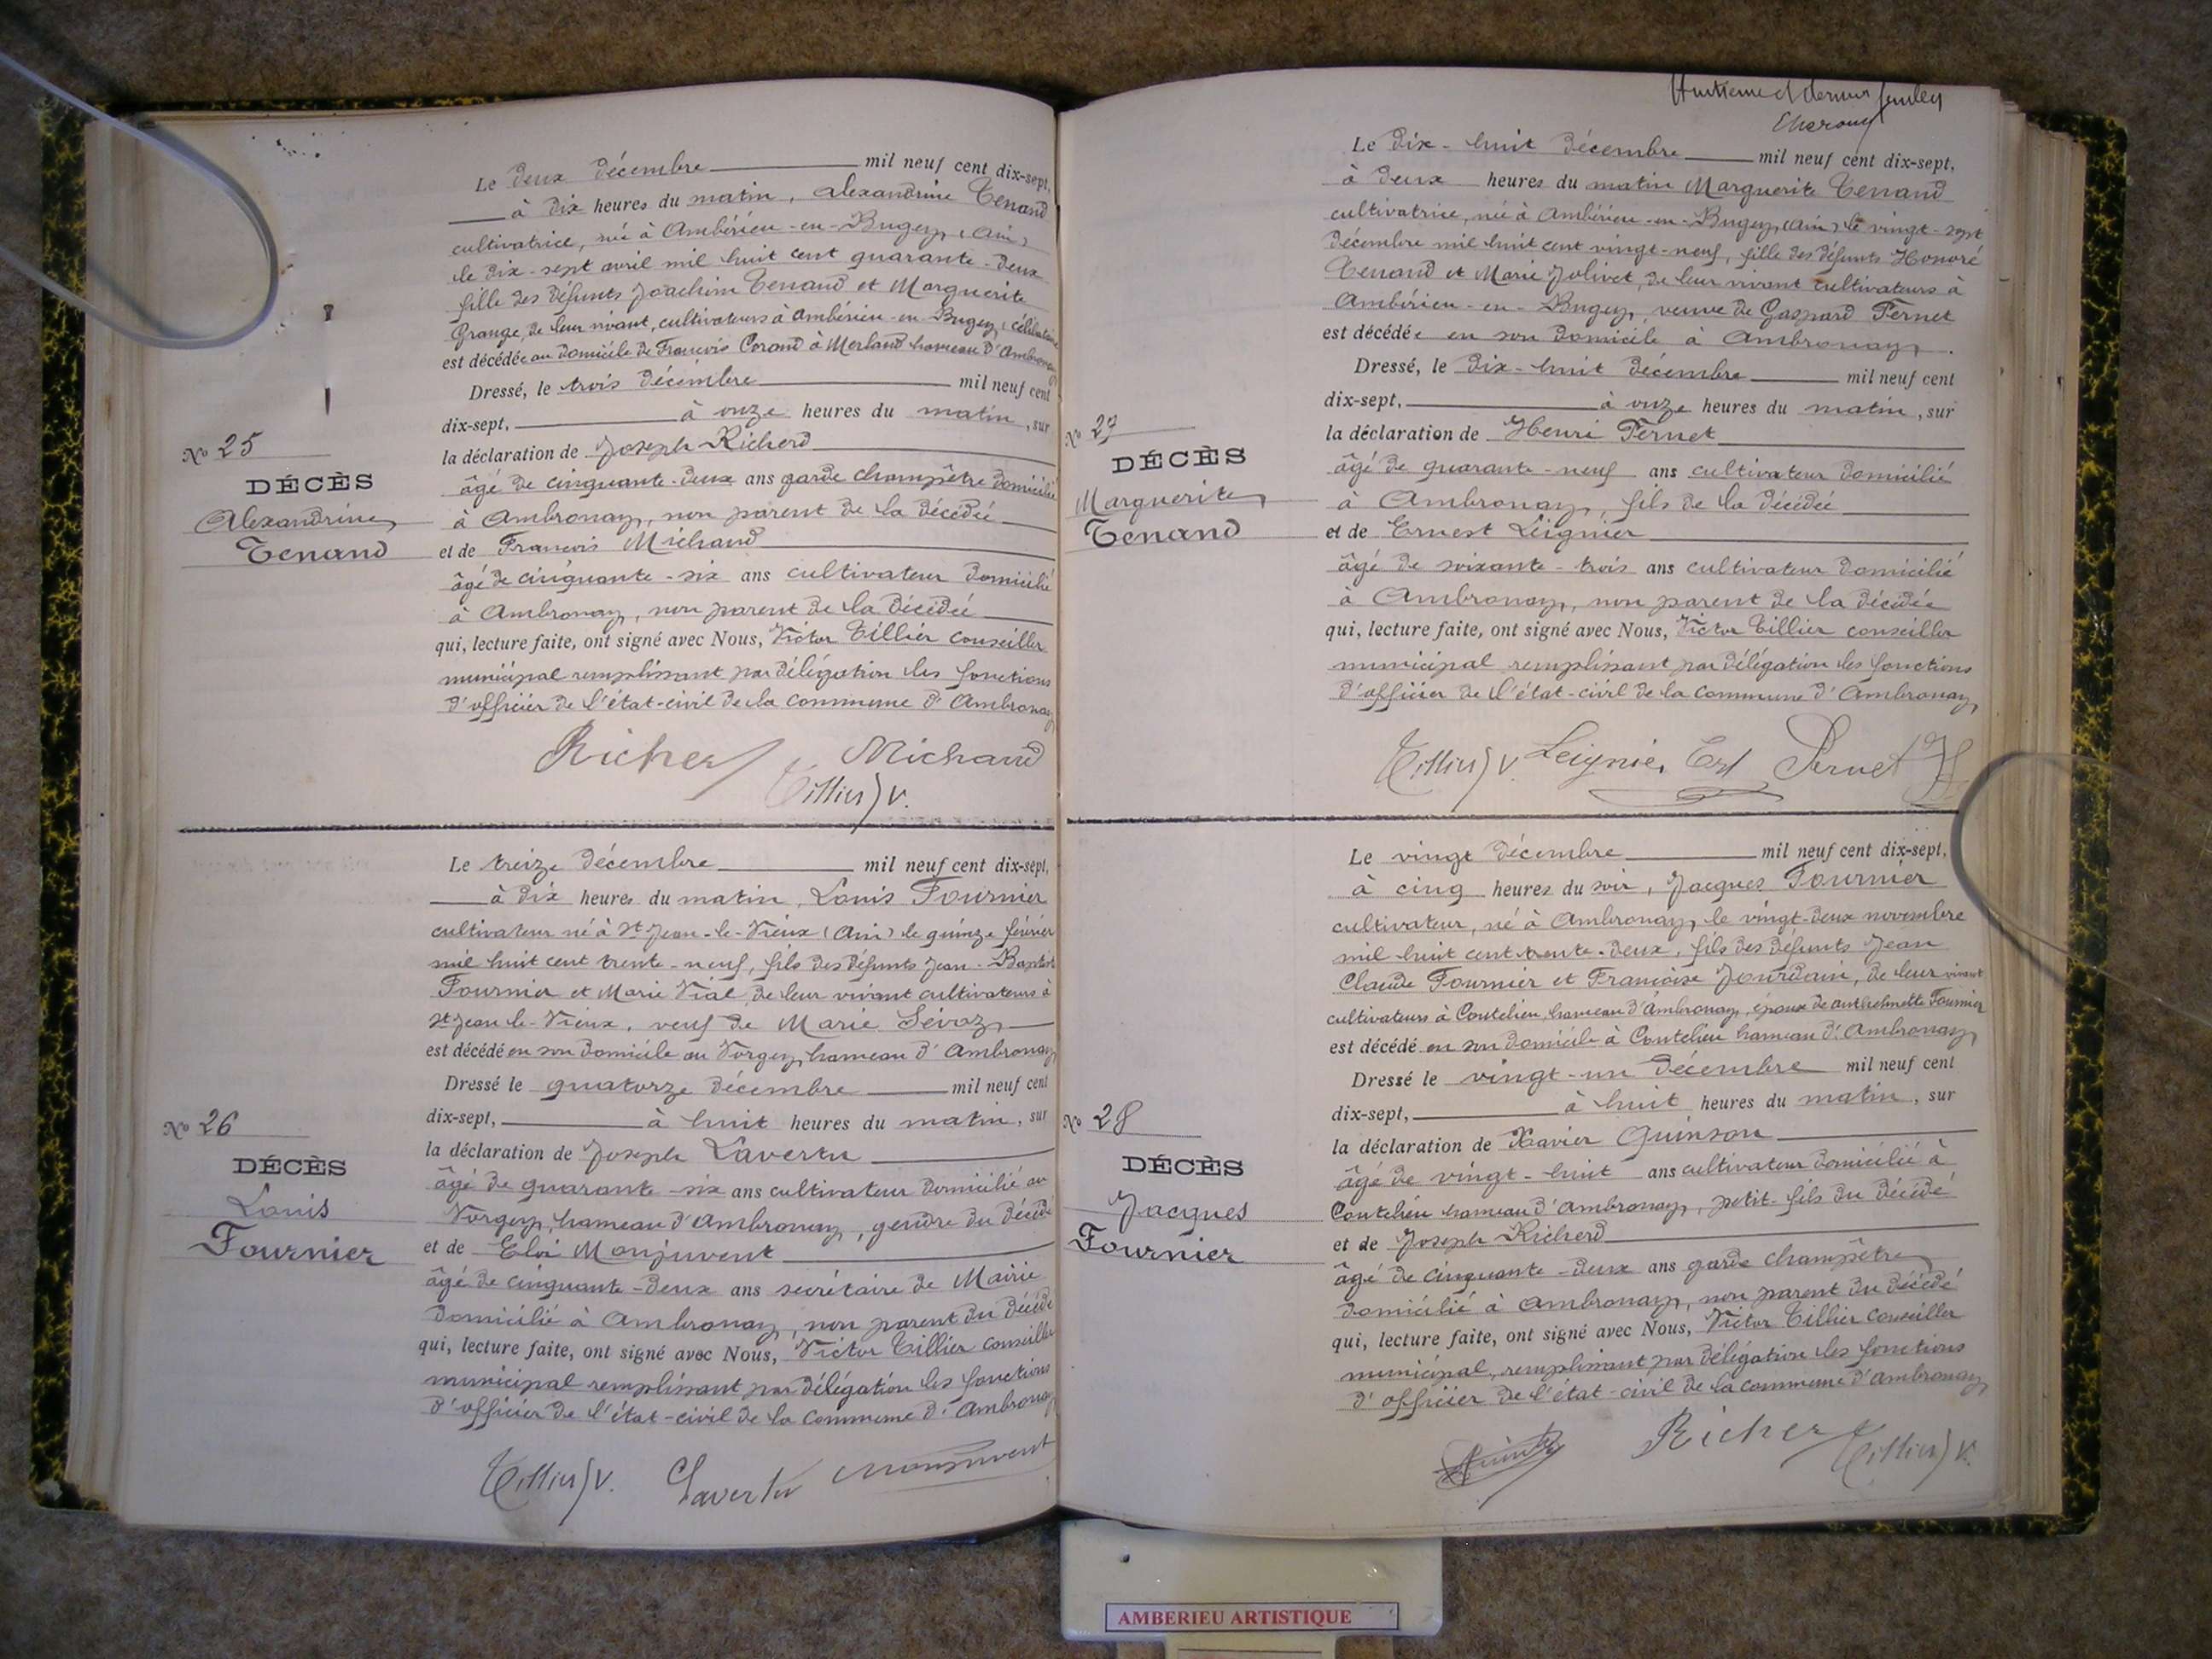 Le deux décembre mil neuf cent dix-sept,
à dix heures du matin, Alexandrine Tenand
cultivatrice, née à Ambérieu-en-Bugey, (Ain)
le dix-sept avril mil huit cent quarante-deux
fille des défunts Joachim Tenand et Marguerite
Grange, de leur vivant, cultivateurs à Ambérieu-en-Bugey, célibataire
est décédée au domicile de François Corand à Merland hameau d'Ambronay
Dressé, le trois décembre mil neuf cent
dix-sept, à onze heures du matin, sur
No 25
DÉCÈS
Alexandrine
Tenand
la déclaration de Joseph Richerd
âgé de cinquante-deux ans garde champêtre domicilié
à Ambronay, non parent de la décédée
et de François Michaud
âgé de cinquante-six ans cultivateur domicilié
à Ambronay, non parent de la décédée
qui, lecture faite, ont signé avec Nous, Victor Tillier conseiller
municipal remplissant par délégation les fonctions
d'officier de l'état-civil de la commune d'Ambronay
Richerd Michaud
Tillier V.
Le treize décembre mil neuf cent dix-sept,
à dix heures du matin, Louis Fournier
cultivateur né à St Jean-le-Vieux (Ain) le quinze février
mil huit cent trente-neuf, fils des défunts Jean-Baptiste
Fournier et Marie Vial, de leur vivant cultivateurs à
St Jean-le-Vieux, veuf de Marie Sévoz
est décédé en son domicile au Vorgey, hameau d'Ambronay
Dressé le quatorze décembre mil neuf cent
dix-sept, à huit heures du matin, sur
No 26
DÉCÈS
Louis
Fournier
la déclaration de Joseph Lavertu
âgé de quarante-six ans cultivateur domicilié au
Vorgey, hameau d'Ambronay, gendre du décédé
et de Eloi Monjuvent
âgé de cinquante-deux ans secrétaire de Mairie
domicilié à Ambronay, non parent du décédé
qui, lecture faite, ont signé avec Nous, Victor Tillier conseiller
municipal remplissant par délégation les fonctions
d'officier de l'état-civil de la commune d'Ambronay
Tillier V. Lavertu Monjuvent
Huitième et dernier feuillet
Le dix-huit décembre mil neuf cent dix-sept,
à deux heures du matin Marguerite Tenand
cultivatrice, née à Ambérieu-en-Bugey, (Ain) le vingt-sept
décembre mil huit cent vingt-neuf, fille des défunts Honoré
Tenand et Marie Jolivet, de leur vivant cultivateurs à
Ambérieu-en-Bugey, veuve de Gaspard Pernet
est décédée en son domicile à Ambronay.
Dressé, le dix-huit décembre mil neuf cent
dix-sept, à onze heures du matin, sur
No 27
DÉCÈS
Marguerite
Tenand
la déclaration de Henri Pernet
âgé de quarante-neuf ans cultivateur domicilié
à Ambronay, fils de la décédée
et de Ernest Leignier
âgé de soixante-trois ans cultivateur domicilié
à Ambronay, non parent de la décédée
qui, lecture faite, ont signé avec Nous, Victor Tillier conseiller
municipal remplissant par délégation les fonctions
d'officier de l'état-civil de la commune d'Ambronay
Tillier V. Leignier Est Pernet H
Le vingt décembre mil neuf cent dix-sept,
à cinq heures du soir, Jacques Fournier
cultivateur, né à Ambronay, le vingt-deux novembre
mil huit cent trente-deux, fils des défunts Jean
Claude Fournier et Françoise Jourdain, de leur vivant
cultivateurs à Coutelieu, hameau d'Ambronay, époux de Anthelmette Fournier
est décédé en son domicile à Coutelieu hameau d'Ambronay
Dressé le vingt-un décembre mil neuf cent
dix-sept, à huit heures du matin, sur
No 28
DÉCÈS
Jacques
Fournier
la déclaration de Xavier Guinson
âgé de vingt-huit ans cultivateur domicilié à
Coutelieu hameau d'Ambronay, petit-fils du décédé
et de Joseph Richerd
âgé de cinquante-deux ans garde champêtre
domicilié à Ambronay, non parent du décédé
qui, lecture faite, ont signé avec Nous, Victor Tillier conseiller
municipal, remplissant par délégation les fonctions
d'officier de l'état-civil de la commune d'Ambronay
Richerd Tillier V.
AMBERIEU ARTISTIQUE